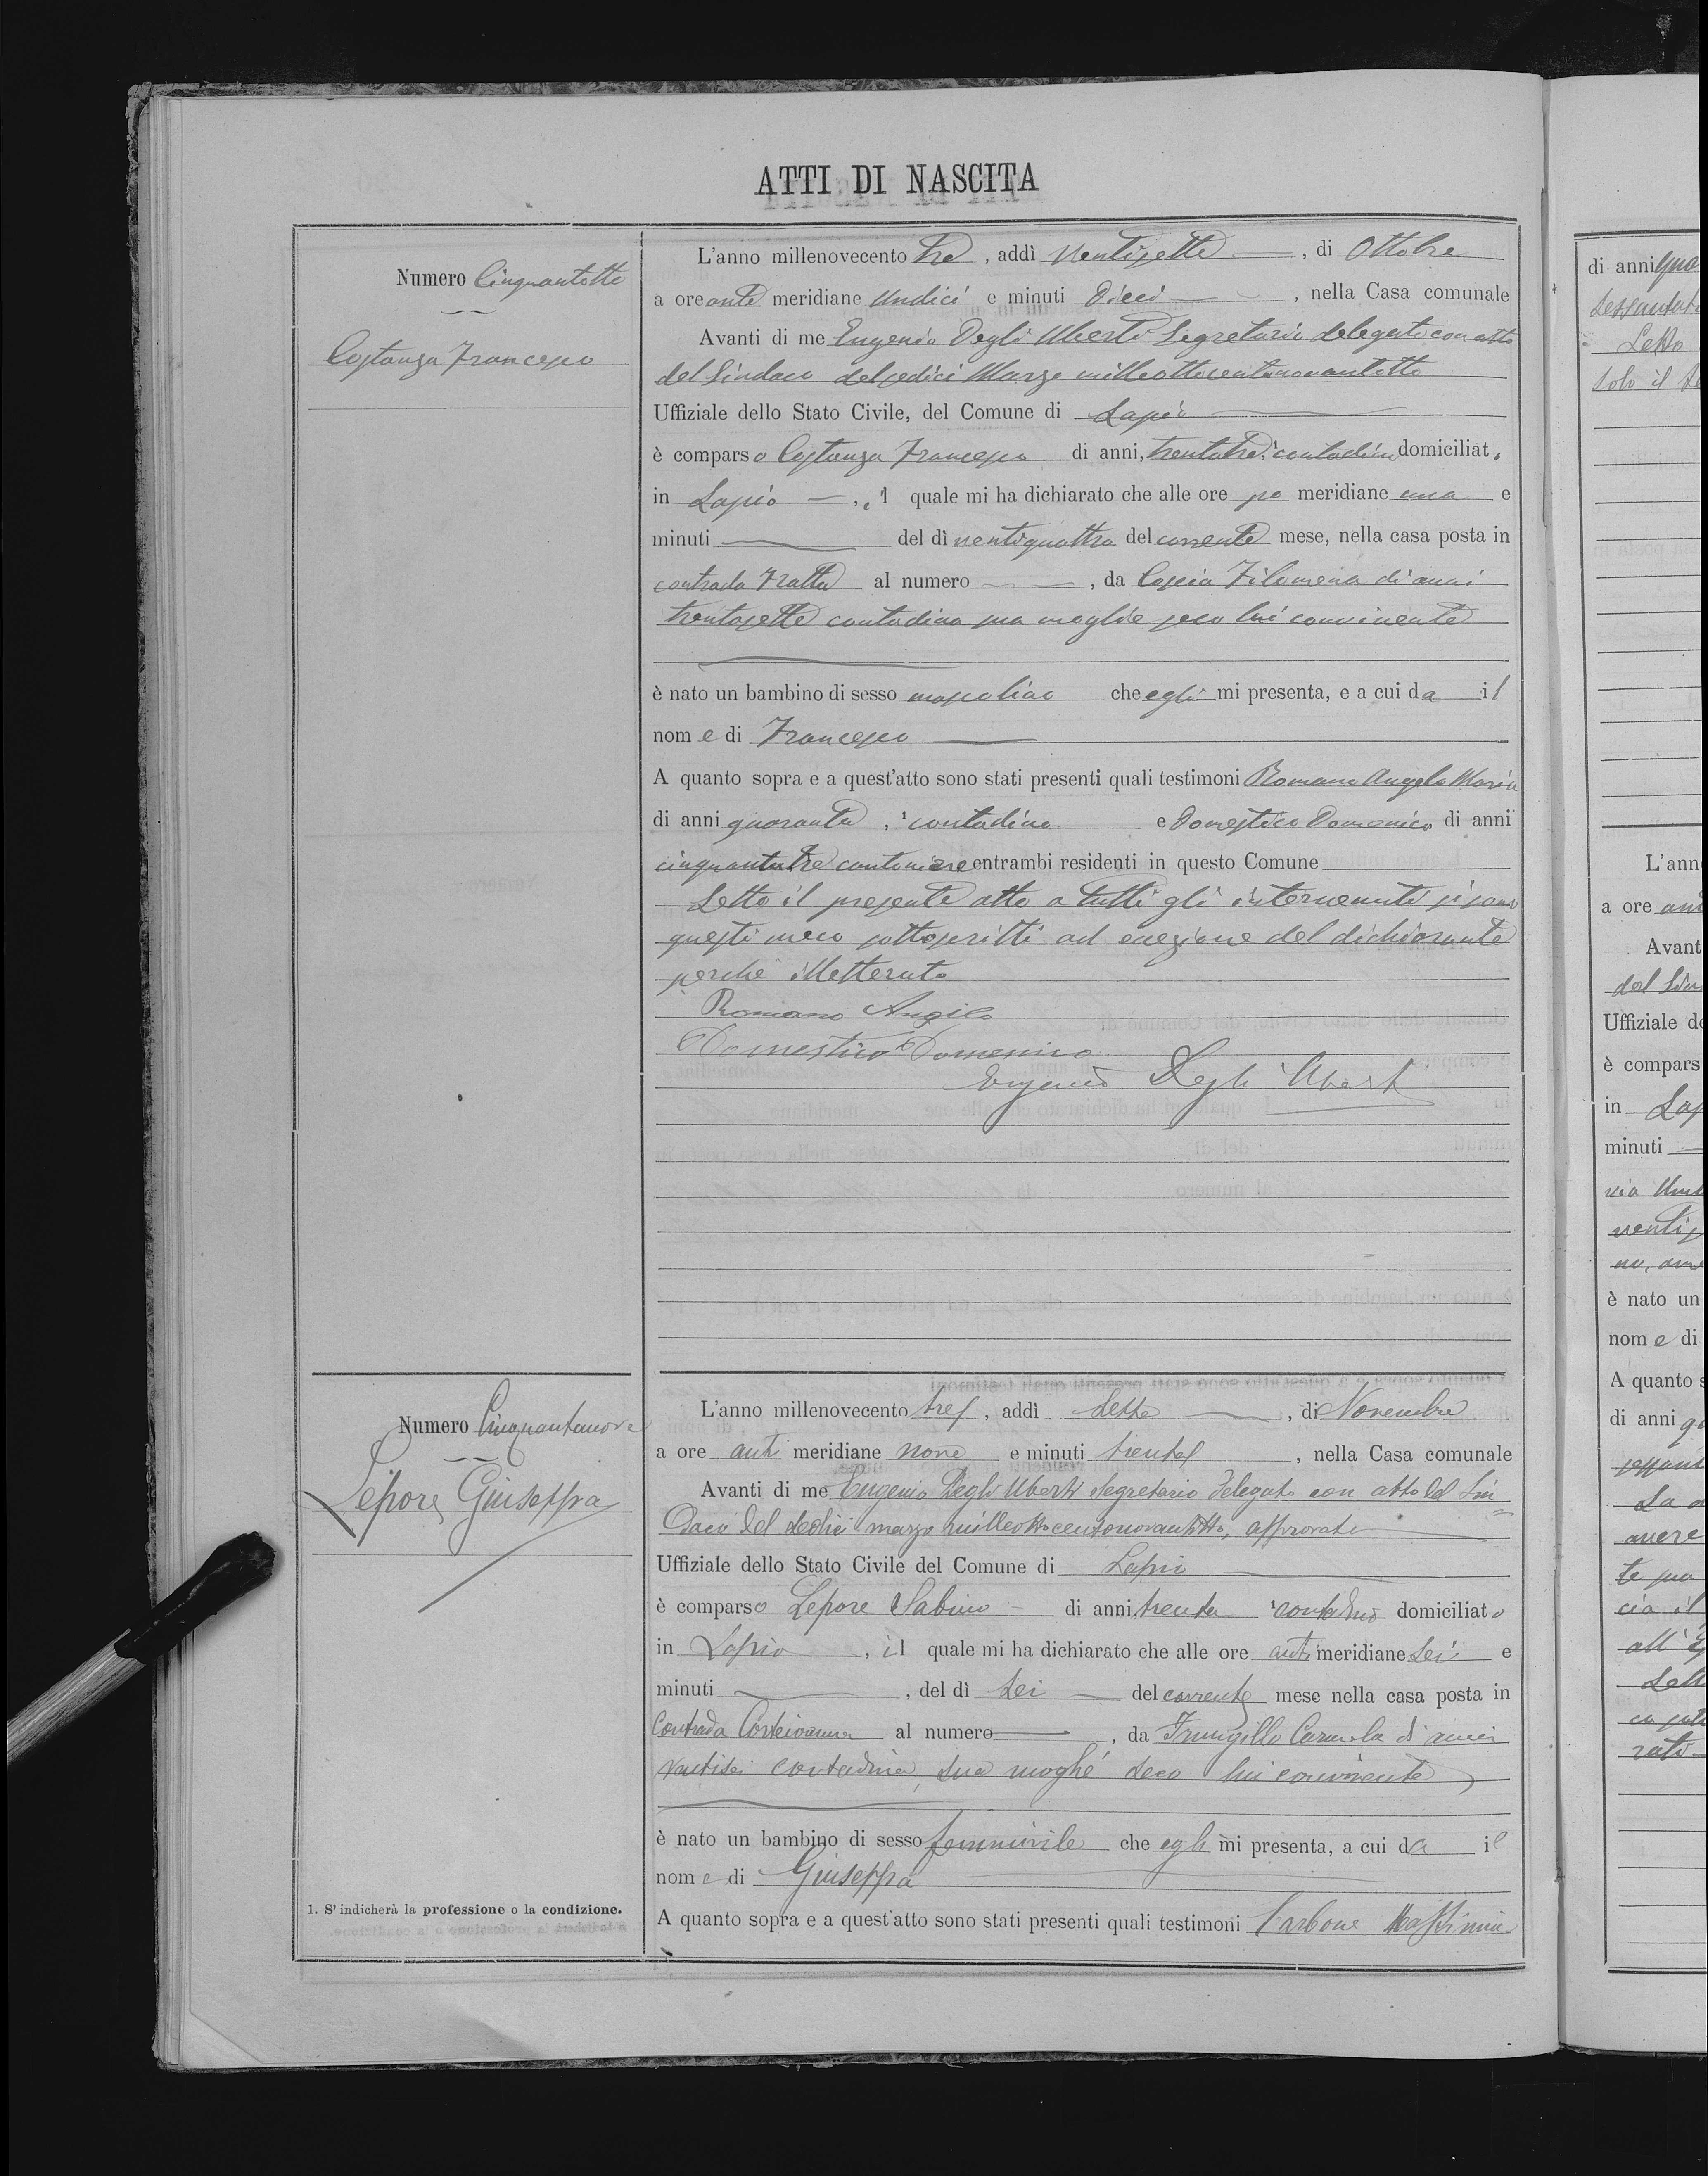 ATTI DI NASCITA
Numero Cinquantotto
Costanza Francesco
L'anno millenovecento tre, addì ventisette, di Ottobre
a ore ante meridiane undici e minuti dieci, nella Casa comunale
Avanti di me Eugenio Degli Uberti Segretario delegato con atto
del Sindaco del sedici Marzo milleottocentonovantotto
Uffiziale dello Stato Civile, del Comune di Lapio
è comparso Costanza Francesco di anni, trentatre, contadino domiciliato
in Lapio, il quale mi ha dichiarato che alle ore po meridiane una e
minuti del dì ventiquattro del corrente mese, nella casa posta in
contrada Fratta al numero, da Filomena di anni
trentasette contadina sua moglie seco lui convivente
è nato un bambino di sesso mascolino che egli mi presenta, e a cui da il
nome di Francesco
A quanto sopra e a quest'atto sono stati presenti quali testimoni Romano Angelo Maria
di anni quaranta, contadino e Domestico Domenico di anni
cinquantatre cantoniere entrambi residenti in questo Comune
Letto il presente atto a tutti gli intervenuti si sono
questi meco sottoscritti ad eccezione del dichiarante
perché illetterato
Romano Angilo
Domestico Domenico
Eugenio Degli Uberti
Numero Cinquantanove
Lepore Giuseppa
L'anno millenovecento tre, addì Sette, di Novembre
a ore anti meridiane nove e minuti trenta, nella Casa comunale
Avanti di me Eugenio Degli Uberti Segretario delegato con atto del Sin=
daco del sedici marzo milleottocentonovantotto, approvato
Uffiziale dello Stato Civile del Comune di Lapio
è comparso Lepore Sabino di anni trenta contadino domiciliato
in Lapio, il quale mi ha dichiarato che alle ore anti meridiane sei e
minuti, del dì sei del corrente mese nella casa posta in
Contrada al numero, da Carmela di anni
ventisei contadina, sua moglie seco lui convivente
è nato un bambino di sesso femminile che egli mi presenta, a cui da il
nome di Giuseppa
1. S'indicherà la professione o la condizione.
A quanto sopra e a quest'atto sono stati presenti quali testimoni Carbone
di anni
Letto
solo il
L'ann
a ore
Avant
del Sin
Uffiziale de
è compars
in Lap
minuti
via
è nato un
nome di
A quanto s
di anni